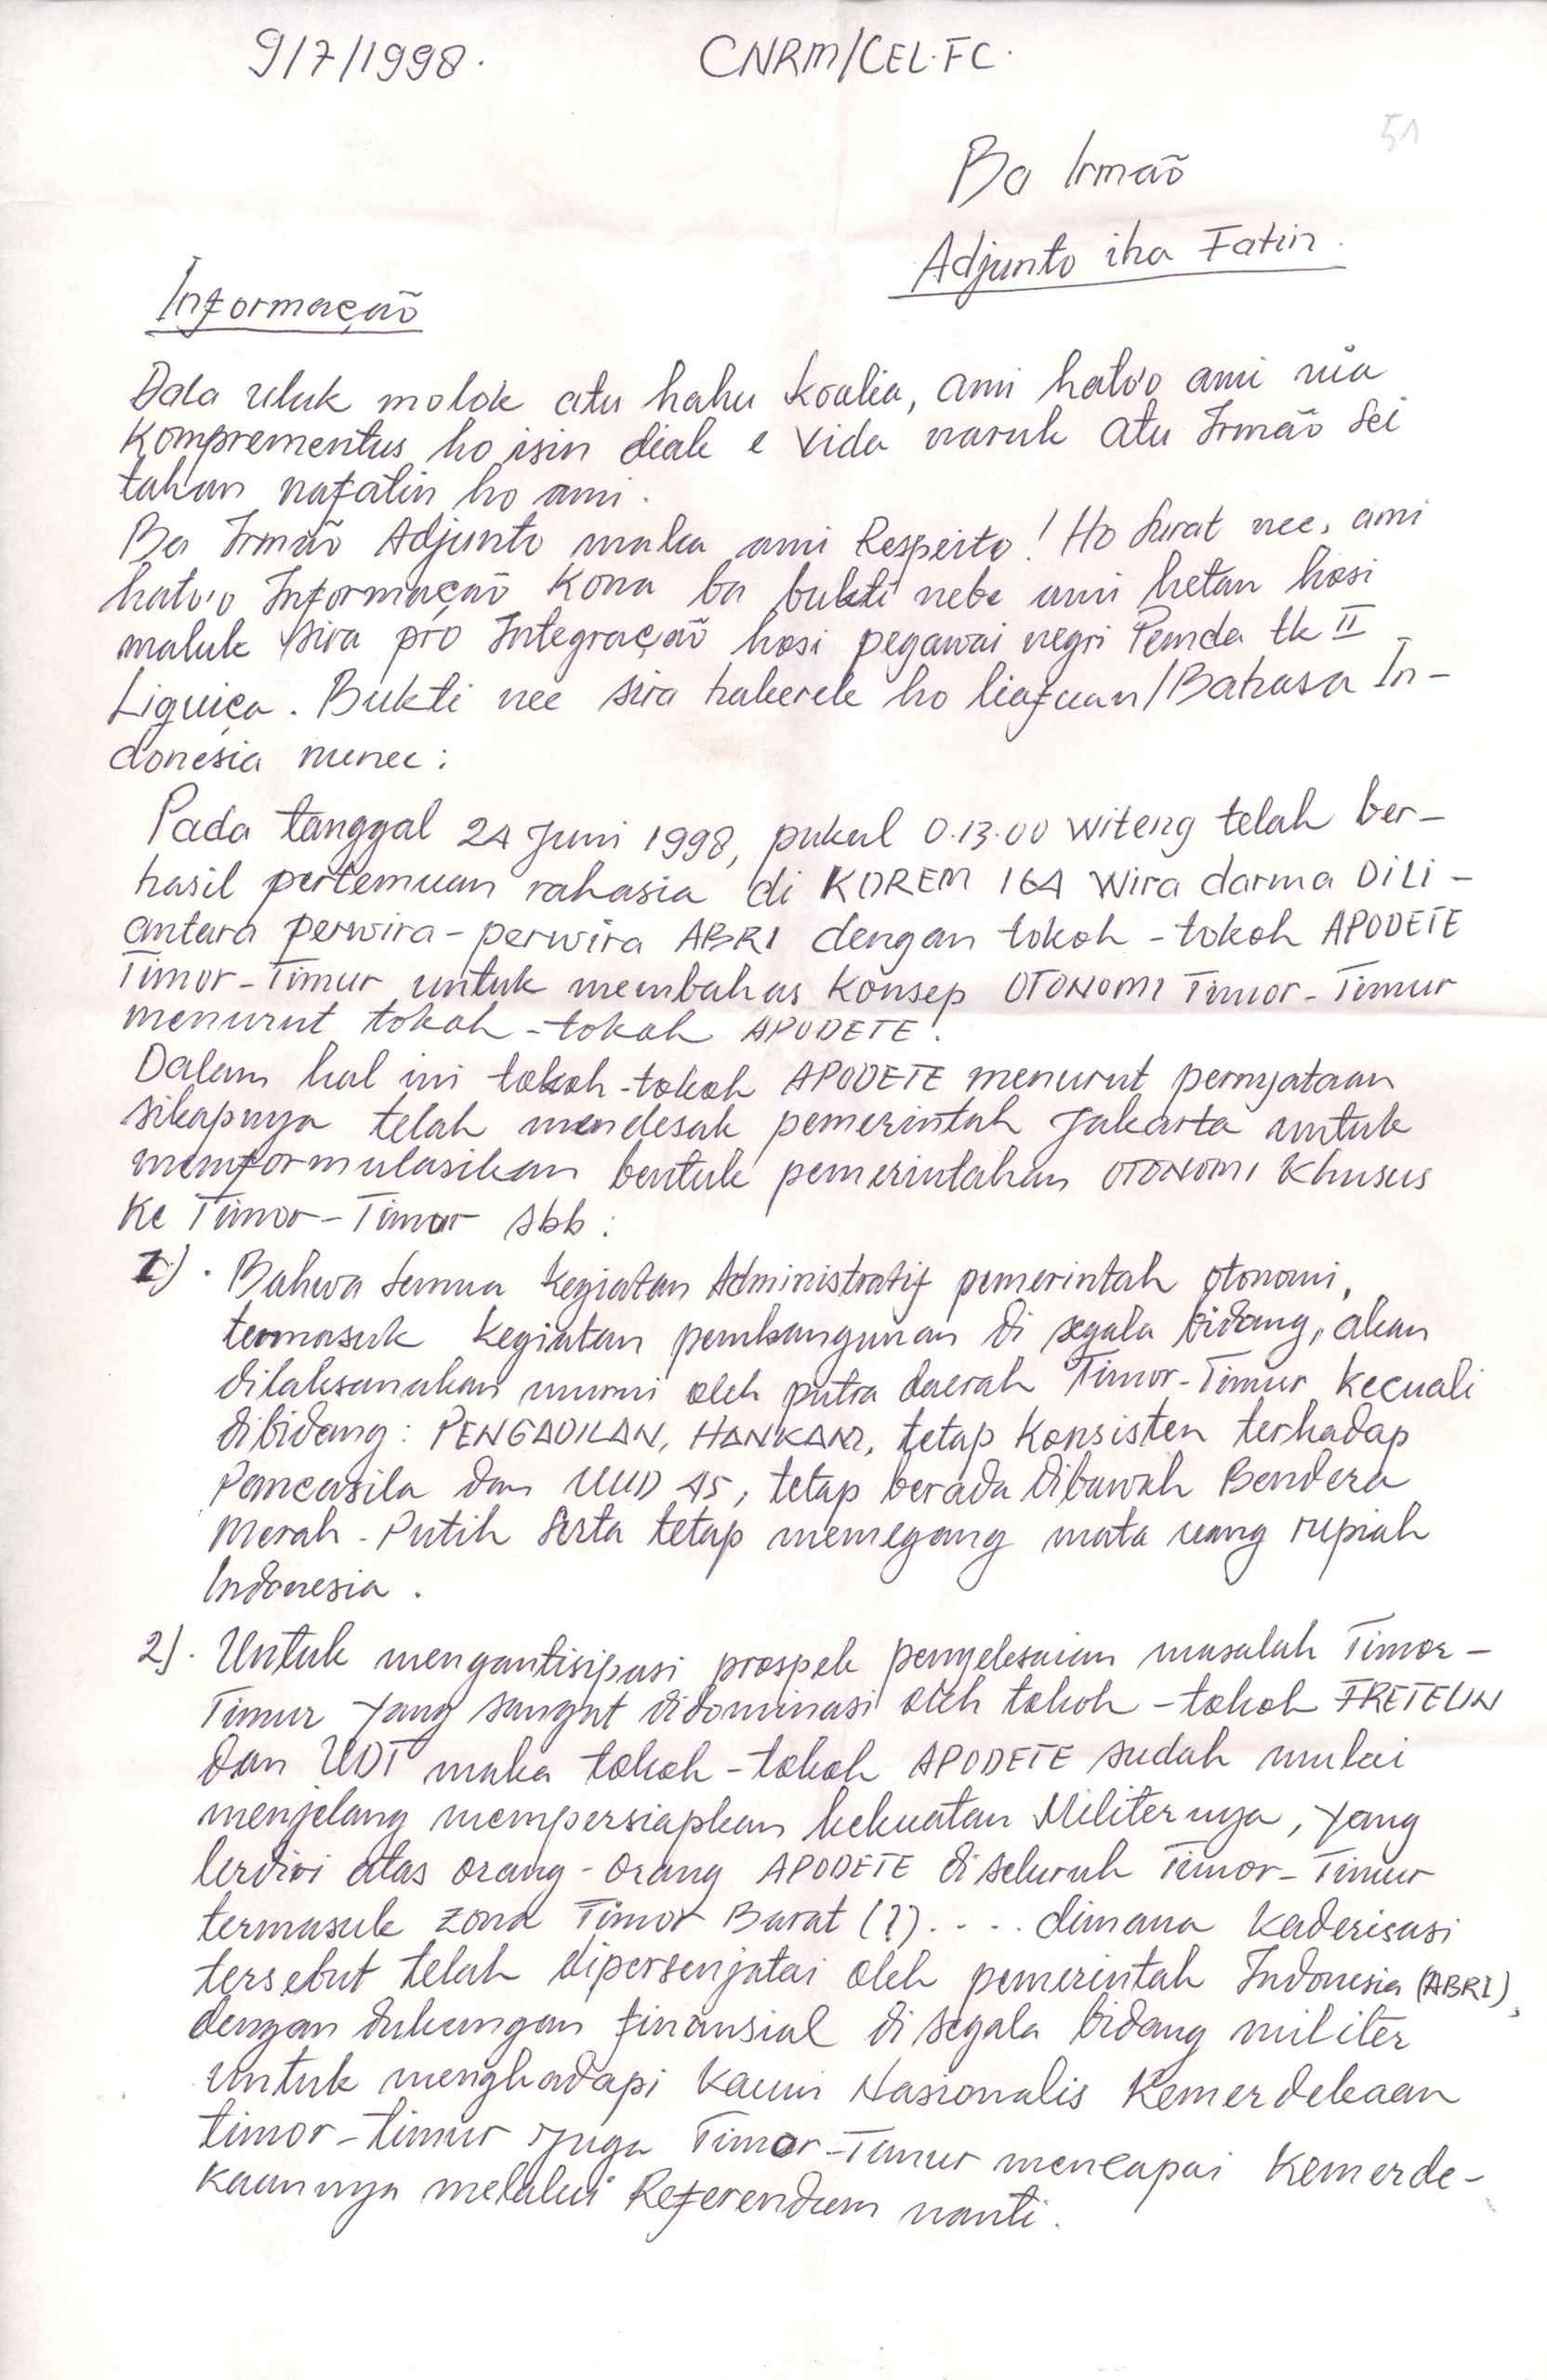 9/7/1998. CNRM/CEL.FC.
51
Ba Irmaõ
Adjunto iha Fatin.
Informaçaõ
Dala uluk molok atu hahu koalia, ami hato'o ami nia
Komprementus ho isin diak e Vida naruk atu Irmaõ sei
tahan nafatin ho ami.
Ba Irmaõ Adjunto maka ami Respeito! Ho Surat nee, ami
hato'o Informaçaõ Kona ba bukti nebe ami hetan hosi
maluk sira pro Integraçaõ hosi pegawai negri Pemda tk II
Liquiça. Bukti nee sira hakerek ho liafuan/Bahasa In-
donesia nunee:
Pada tanggal 24 Juni 1998, pukul 0.13.00 witeng telah ber-
hasil pertemuan rahasia di KOREM 164 Wira darma DiLi -
antara perwira-perwira ABRI dengan tokoh-tokoh APODETE
Timor-Timur untuk membahas konsep OTONOMI Timor-Timur
menurut tokoh-tokoh APODETE.
Dalam hal ini tokoh-tokoh APODETE menurut pernyataan
sikapnya telah mendesak pemerintah Jakarta untuk
memformulasikan bentuk pemerintahan OTONOMI Khusus
Ke Timor-Timur sbb:
1). Bahwa Semua kegiatan Administratif pemerintah otonomi,
termasuk kegiatan pembangunan di segala bidang, akan
dilaksanakan murni oleh putra daerah Timor-Timur kecuali
dibidang: PENGADILAN, HANKAM, tetap Konsisten terhadap
Pancasila dan UUD 45, tetap berada dibawah Bendera
Merah-Putih Serta tetap memegang mata uang rupiah
Indonesia.
2). Untuk mengantisipasi prospek penyelesaian masalah Timor-
Timur yang sangat didominasi oleh tokoh-tokoh FRETELIN
dan UDT maka tokoh-tokoh APODETE sudah mulai
menjelang mempersiapkan kekuatan Militernya, yang
terdiri atas orang-orang APODETE di seluruh Timor-Timur
termasuk zona Timor Barat (?).... dimana Kaderisasi
tersebut telah dipersenjatai oleh pemerintah Indonesia (ABRI),
dengan dukungan finansial di segala bidang militer
untuk menghadapi Kaum Nasionalis Kemerdekaan
timor-timur juga Timor-Timur mencapai Kemerde-
Kaannya melalui Referendum nanti.